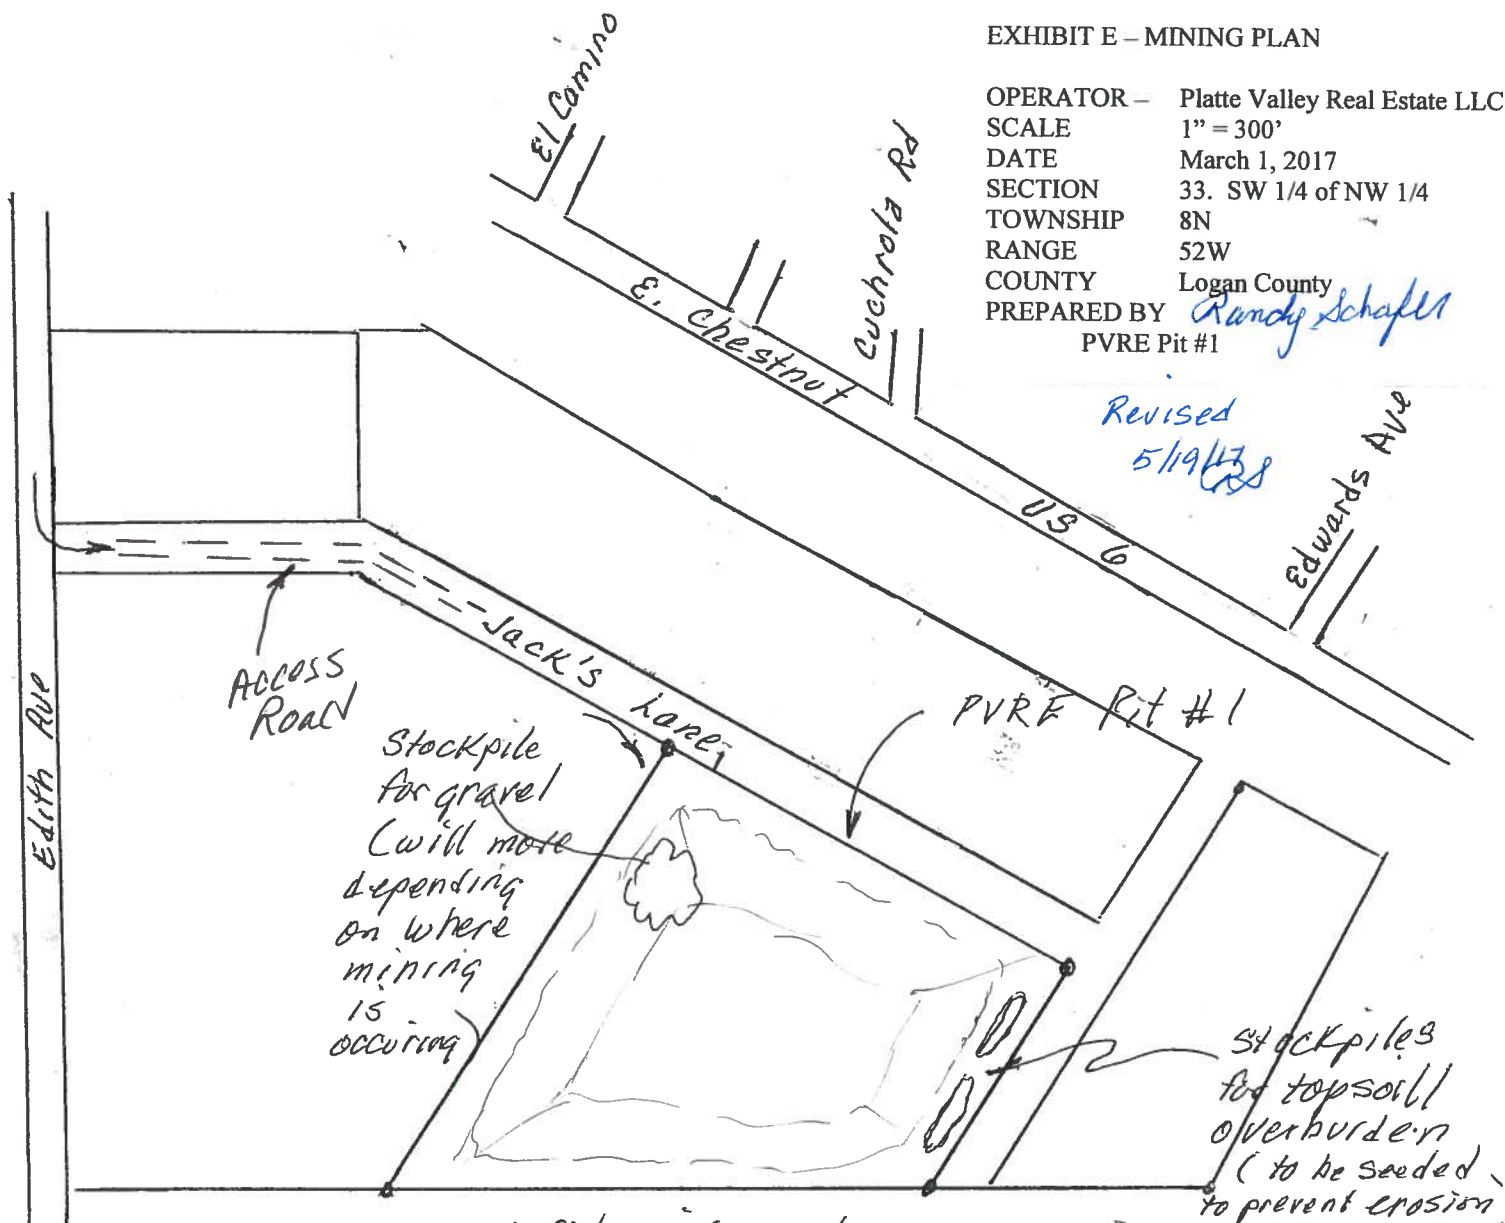 EXHIBIT E – MINING PLAN
OPERATOR – Platte Valley Real Estate LLC
SCALE 1” = 300’
DATE March 1, 2017
SECTION 33. SW 1/4 of NW 1/4
TOWNSHIP 8N
RANGE 52W
COUNTY Logan County
PREPARED BY Randy Schafer
PVRE Pit #1
Revised
5/19/17 RS
El Camino
Cuchrola Rd
E. Chestnut
US 6
Edwards Ave
Edith Ave
Access
Road
Jack's Lane
PVRE Pit #1
Stockpile
for gravel
(will move
depending
on where
mining
is
occuring
Stockpiles
for topsoil/
overburden
( to be seeded
to prevent erosion